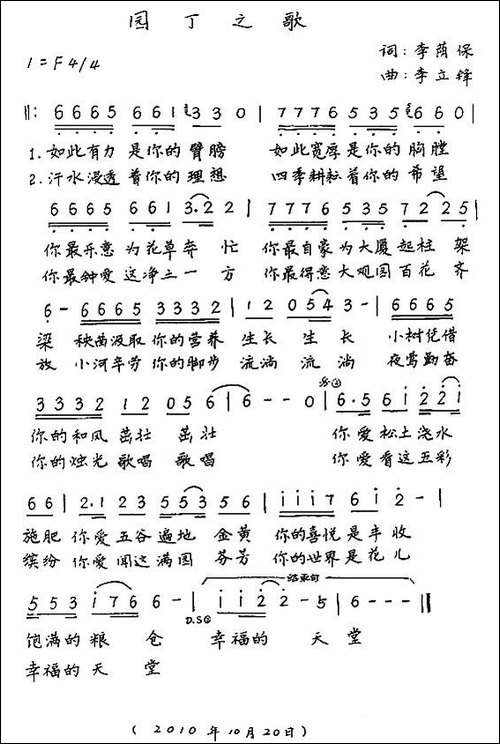 园丁之歌
词:李荫保
1=F4/4
曲:李立锋
‖: 6665 661 330 | 7776 535 660 |
1.如此有力 是你的 臂膀 如此宽厚 是你的 胸膛
2.汗水浸透 着你的 理想 四季耕耘 着你的 希望
6665 661 3.22 | 7776 535 7225 |
你最乐意 为花草 奔忙 你最自豪 为大厦 起柱架
你最钟爱 这净土 一方 你最得意 大观园 百花齐
6- 6665 3332 | 12 0543- | 6665
梁 秧苗汲取 你的营养 生长 生长 小树凭借
放 小河辛劳 你的脚步 流淌 流淌 夜莺勤奋
3332 12 056 | 6--0 | 6.561221
你的和风 茁壮 茁壮 你爱松土浇水
你的烛光 歌唱 歌唱 你爱看这五彩
66 | 2.123 5535 56 | 1117 612- |
施肥 你爱五谷遍地 金黄 你的喜悦是丰收
缤纷 你爱闻这满园 芬芳 你的世界是花儿
结束句
553 1766 - | 1122-5 | 6--- ‖
D.S
饱满的 粮仓 幸福的 天堂
幸福的 天堂
(2010年10月20日)